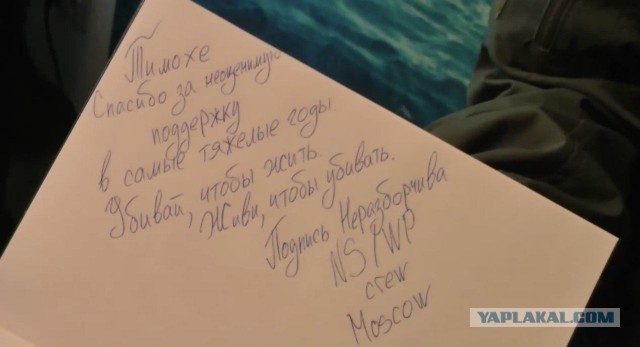 Тимохе
Спасибо за неоценимую
поддержку
в самые тяжелые годы.
Убивай, чтобы жить.
Живи, чтобы убивать.
Подпись Неразборчива
NS/WP
crew
Moscow
YAPLAKAL.COM